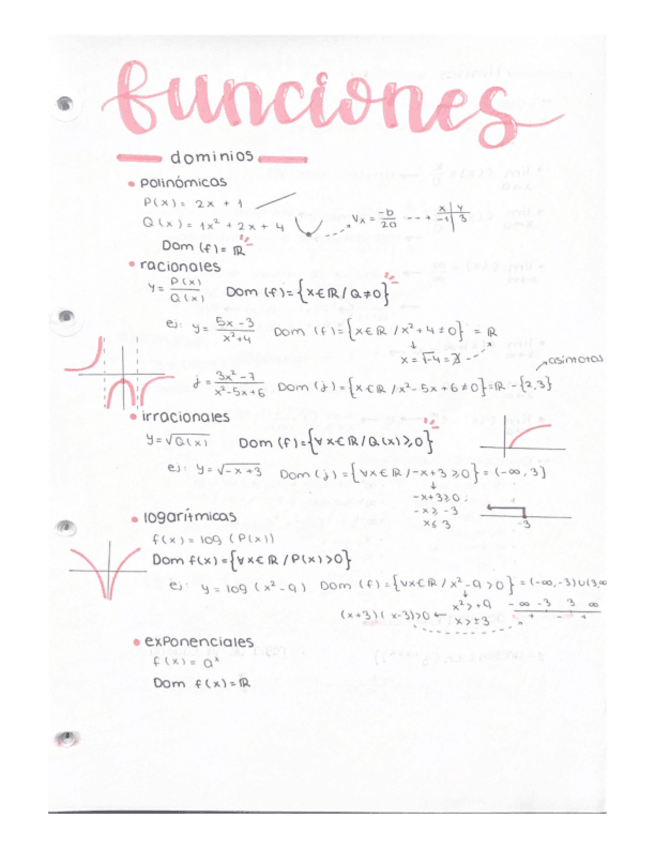 funciones
dominios
• polinómicas
P(x) = 2x + 1
Q(x) = 1x² + 2x + 4
Vx = -b/2a --→ x | y
-1 | 3
Dom (f) = ℝ
• racionales
y = P(x)/Q(x) Dom (f) = {x∈ℝ / Q≠0}
ej: y = 5x - 3/x²+4 Dom (f) = {x∈ℝ / x²+4≠0} = ℝ
↓
x = √-4 = ∄
asíntotas
j = 3x² - 7/x²-5x+6 Dom (j) = {x∈ℝ / x²-5x+6≠0} = ℝ - {2,3}
• irracionales
y = √Q(x) Dom (f) = {∀x∈ℝ / Q(x)≥0}
ej: y = √-x+3 Dom (j) = {∀x∈ℝ / -x+3≥0} = (-∞, 3]
↓
-x+3≥0;
-x≥-3
x≤3
-3
• logarítmicas
f(x) = log (P(x))
Dom f(x) = {∀x∈ℝ / P(x)>0}
ej: y = log (x²-9) Dom (f) = {∀x∈ℝ / x²-9>0} = (-∞,-3)∪(3,∞
↓
x²>+9
(x+3)(x-3)>0 ← x>±3
-∞ -3 3 ∞
+ - +
• exponenciales
f(x) = aˣ
Dom f(x) = ℝ